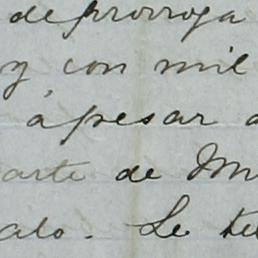 de prorroga
y con mil
ápesar
arte de
Le